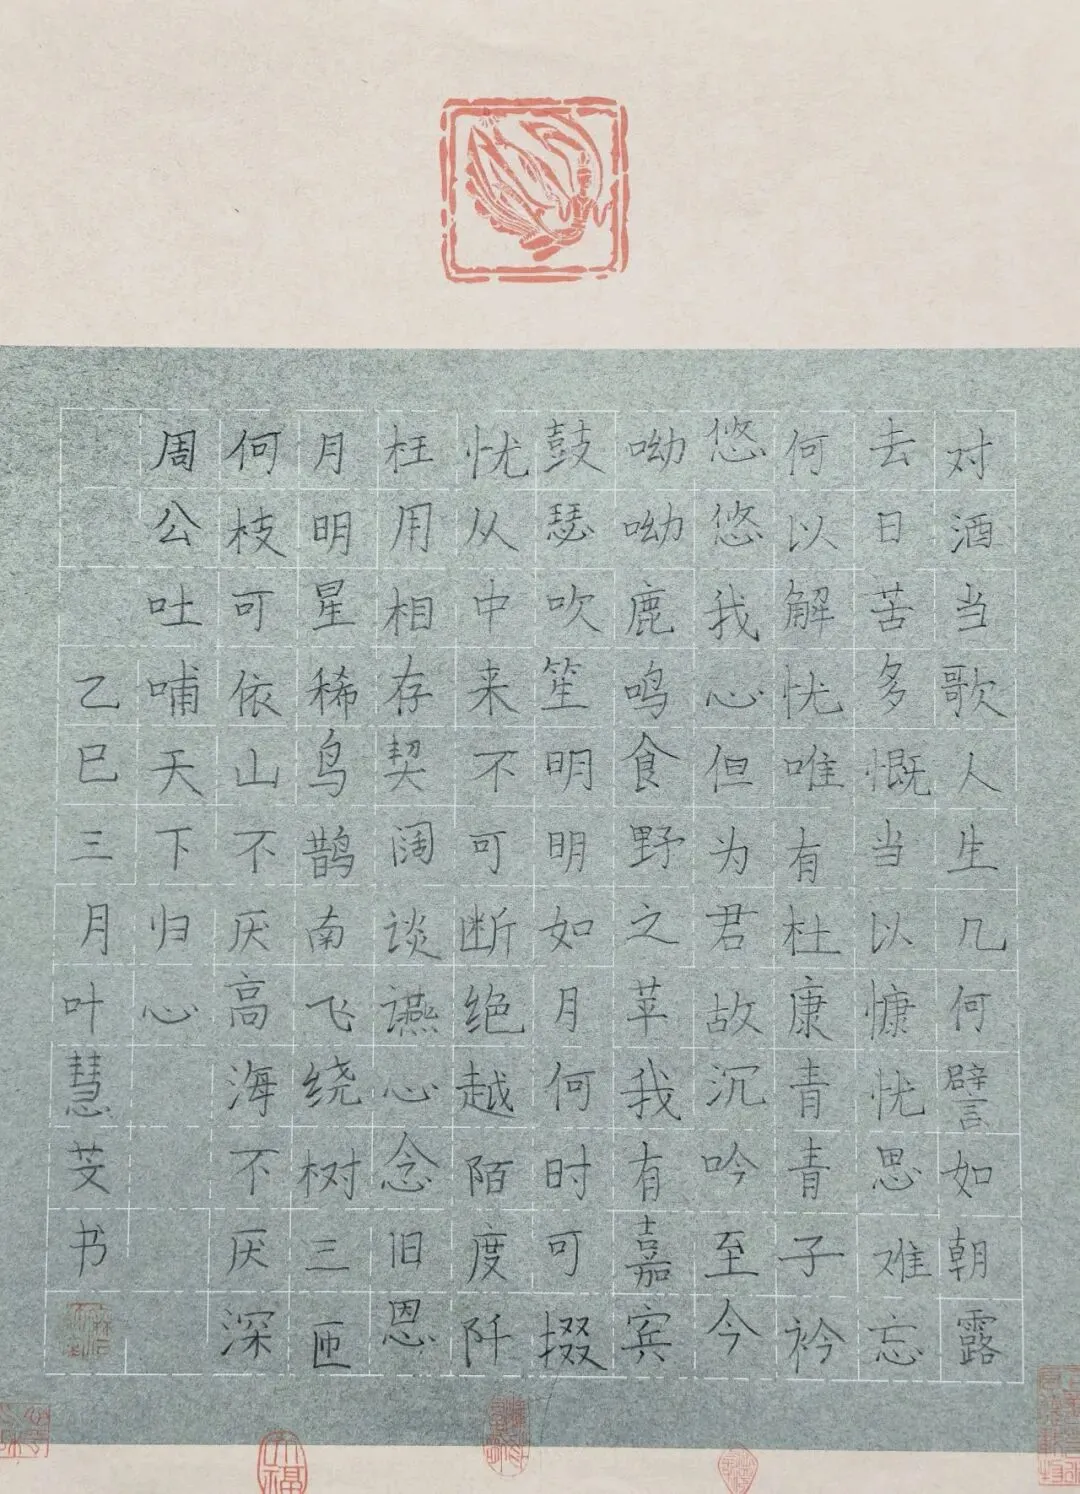 对酒当歌人生几何譬如朝露
去日苦多慨当以慷忧思难忘
何以解忧唯有杜康青青子衿
悠悠我心但为君故沉吟至今
呦呦鹿鸣食野之苹我有嘉宾
鼓瑟吹笙明明如月何时可掇
忧从中来不可断绝越陌度阡
枉用相存契阔谈讌心念旧恩
月明星稀鸟鹊南飞绕树三匝
何枝可依山不厌高海不厌深
周公吐哺天下归心
乙巳三月叶慧芠书